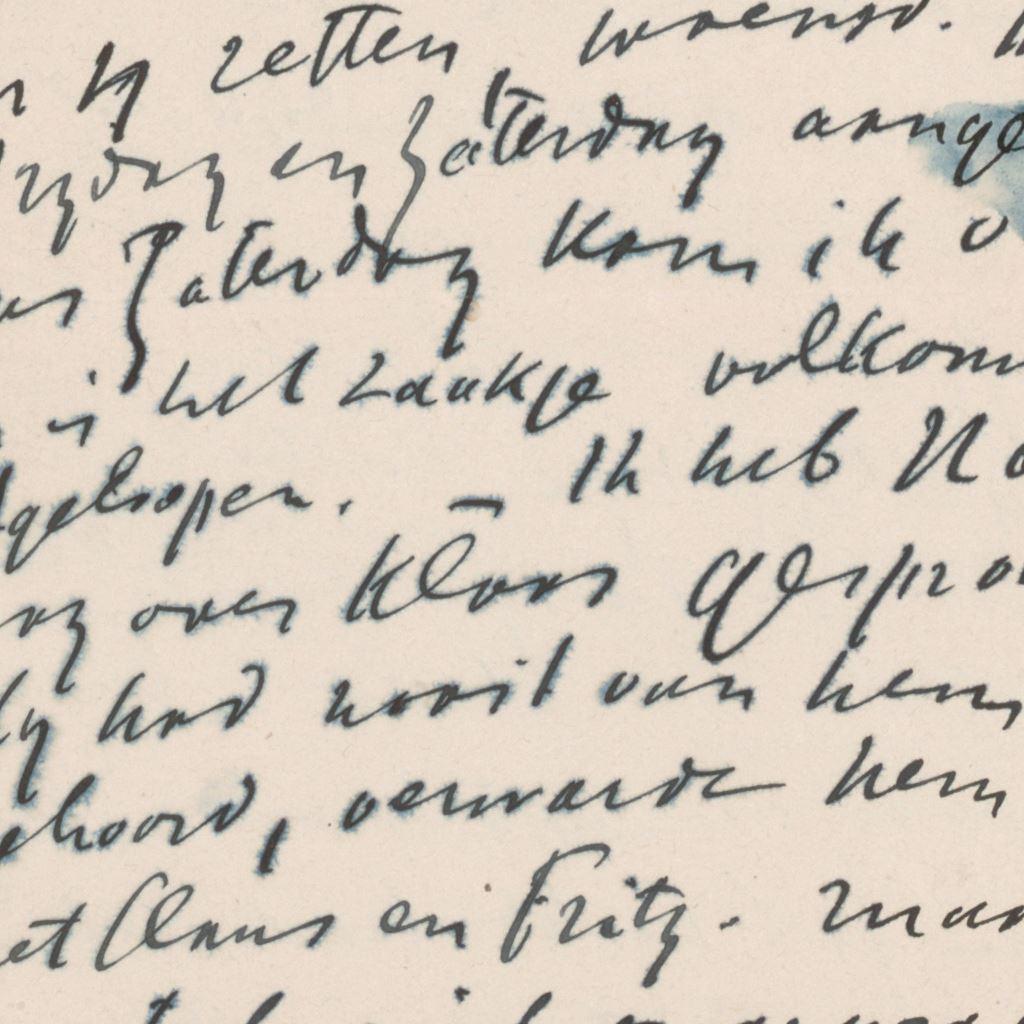 zy zetten, woensd.
Vrydag en Zaterdag aange
Zaterdag kom ik o
is het zaakje volkom
gelopen. — Ik heb
over Klaas gespro
Hy had nooit van hem
gehoord, verwarde hem
met Claus en Fritz. Maar